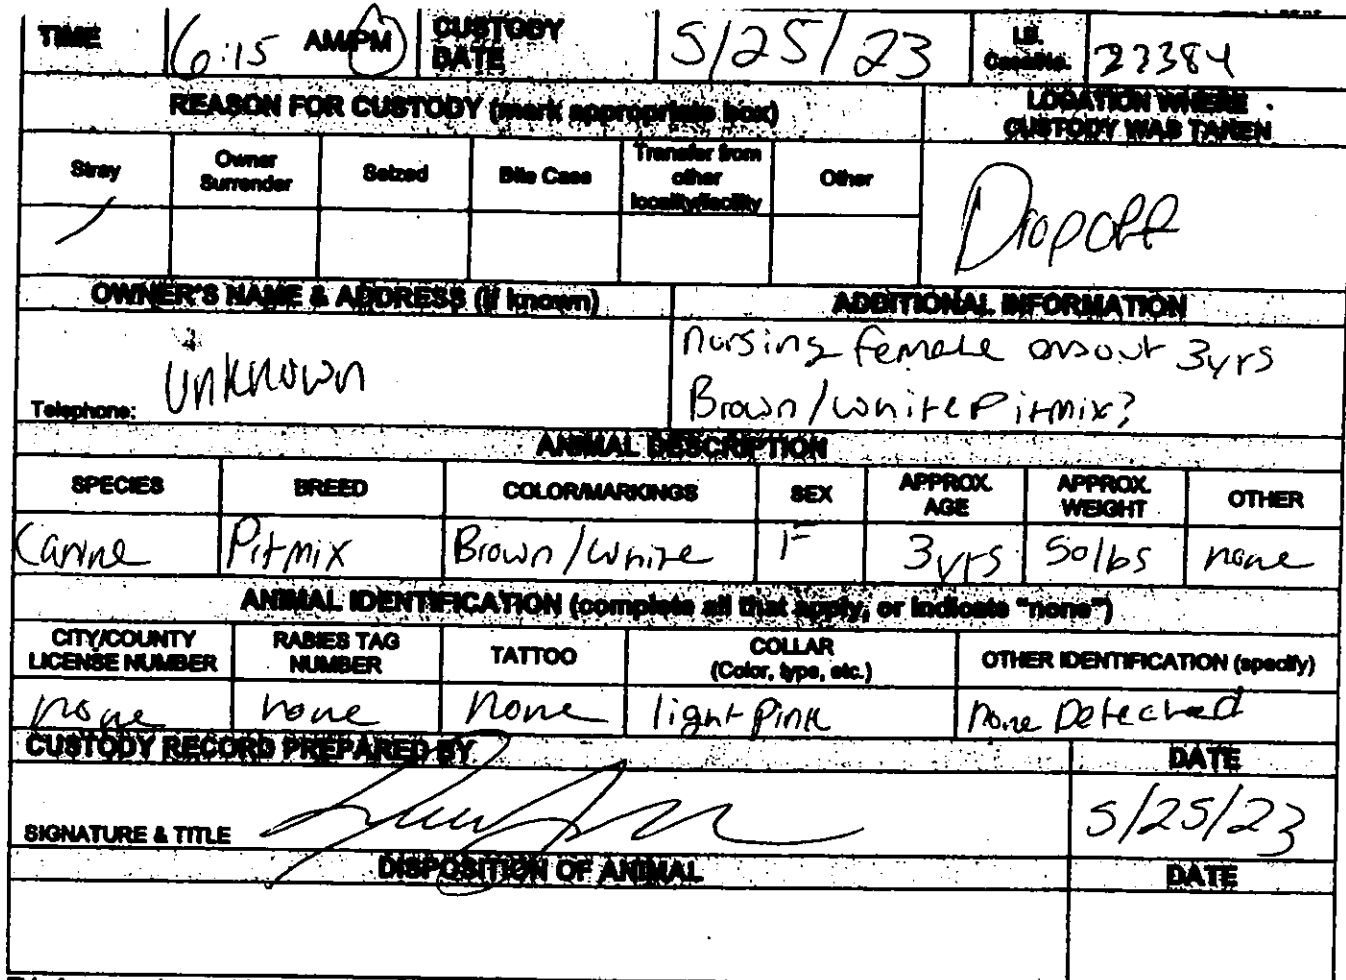 TIME 6:15 AM/PM CUSTODY DATE 5/25/23 I.D. Case/No. 27384
REASON FOR CUSTODY (mark appropriate box) LOCATION WHERE CUSTODY WAS TAKEN
Stray Owner Surrender Seized Bite Case Transfer from other locality/facility Other
Dropoff
OWNER'S NAME & ADDRESS (if known) ADDITIONAL INFORMATION
unknown
Telephone:
nursing female about 3yrs
Brown/white Pitmix?
ANIMAL DESCRIPTION
SPECIES BREED COLOR/MARKINGS SEX APPROX. AGE APPROX. WEIGHT OTHER
Canine Pitmix Brown/white F 3yrs 50lbs none
ANIMAL IDENTIFICATION (complete all that apply, or indicate "none")
CITY/COUNTY LICENSE NUMBER RABIES TAG NUMBER TATTOO COLLAR (Color, type, etc.) OTHER IDENTIFICATION (specify)
none none none light Pink None Detected
CUSTODY RECORD PREPARED BY DATE
SIGNATURE & TITLE 5/25/23
DISPOSITION OF ANIMAL DATE